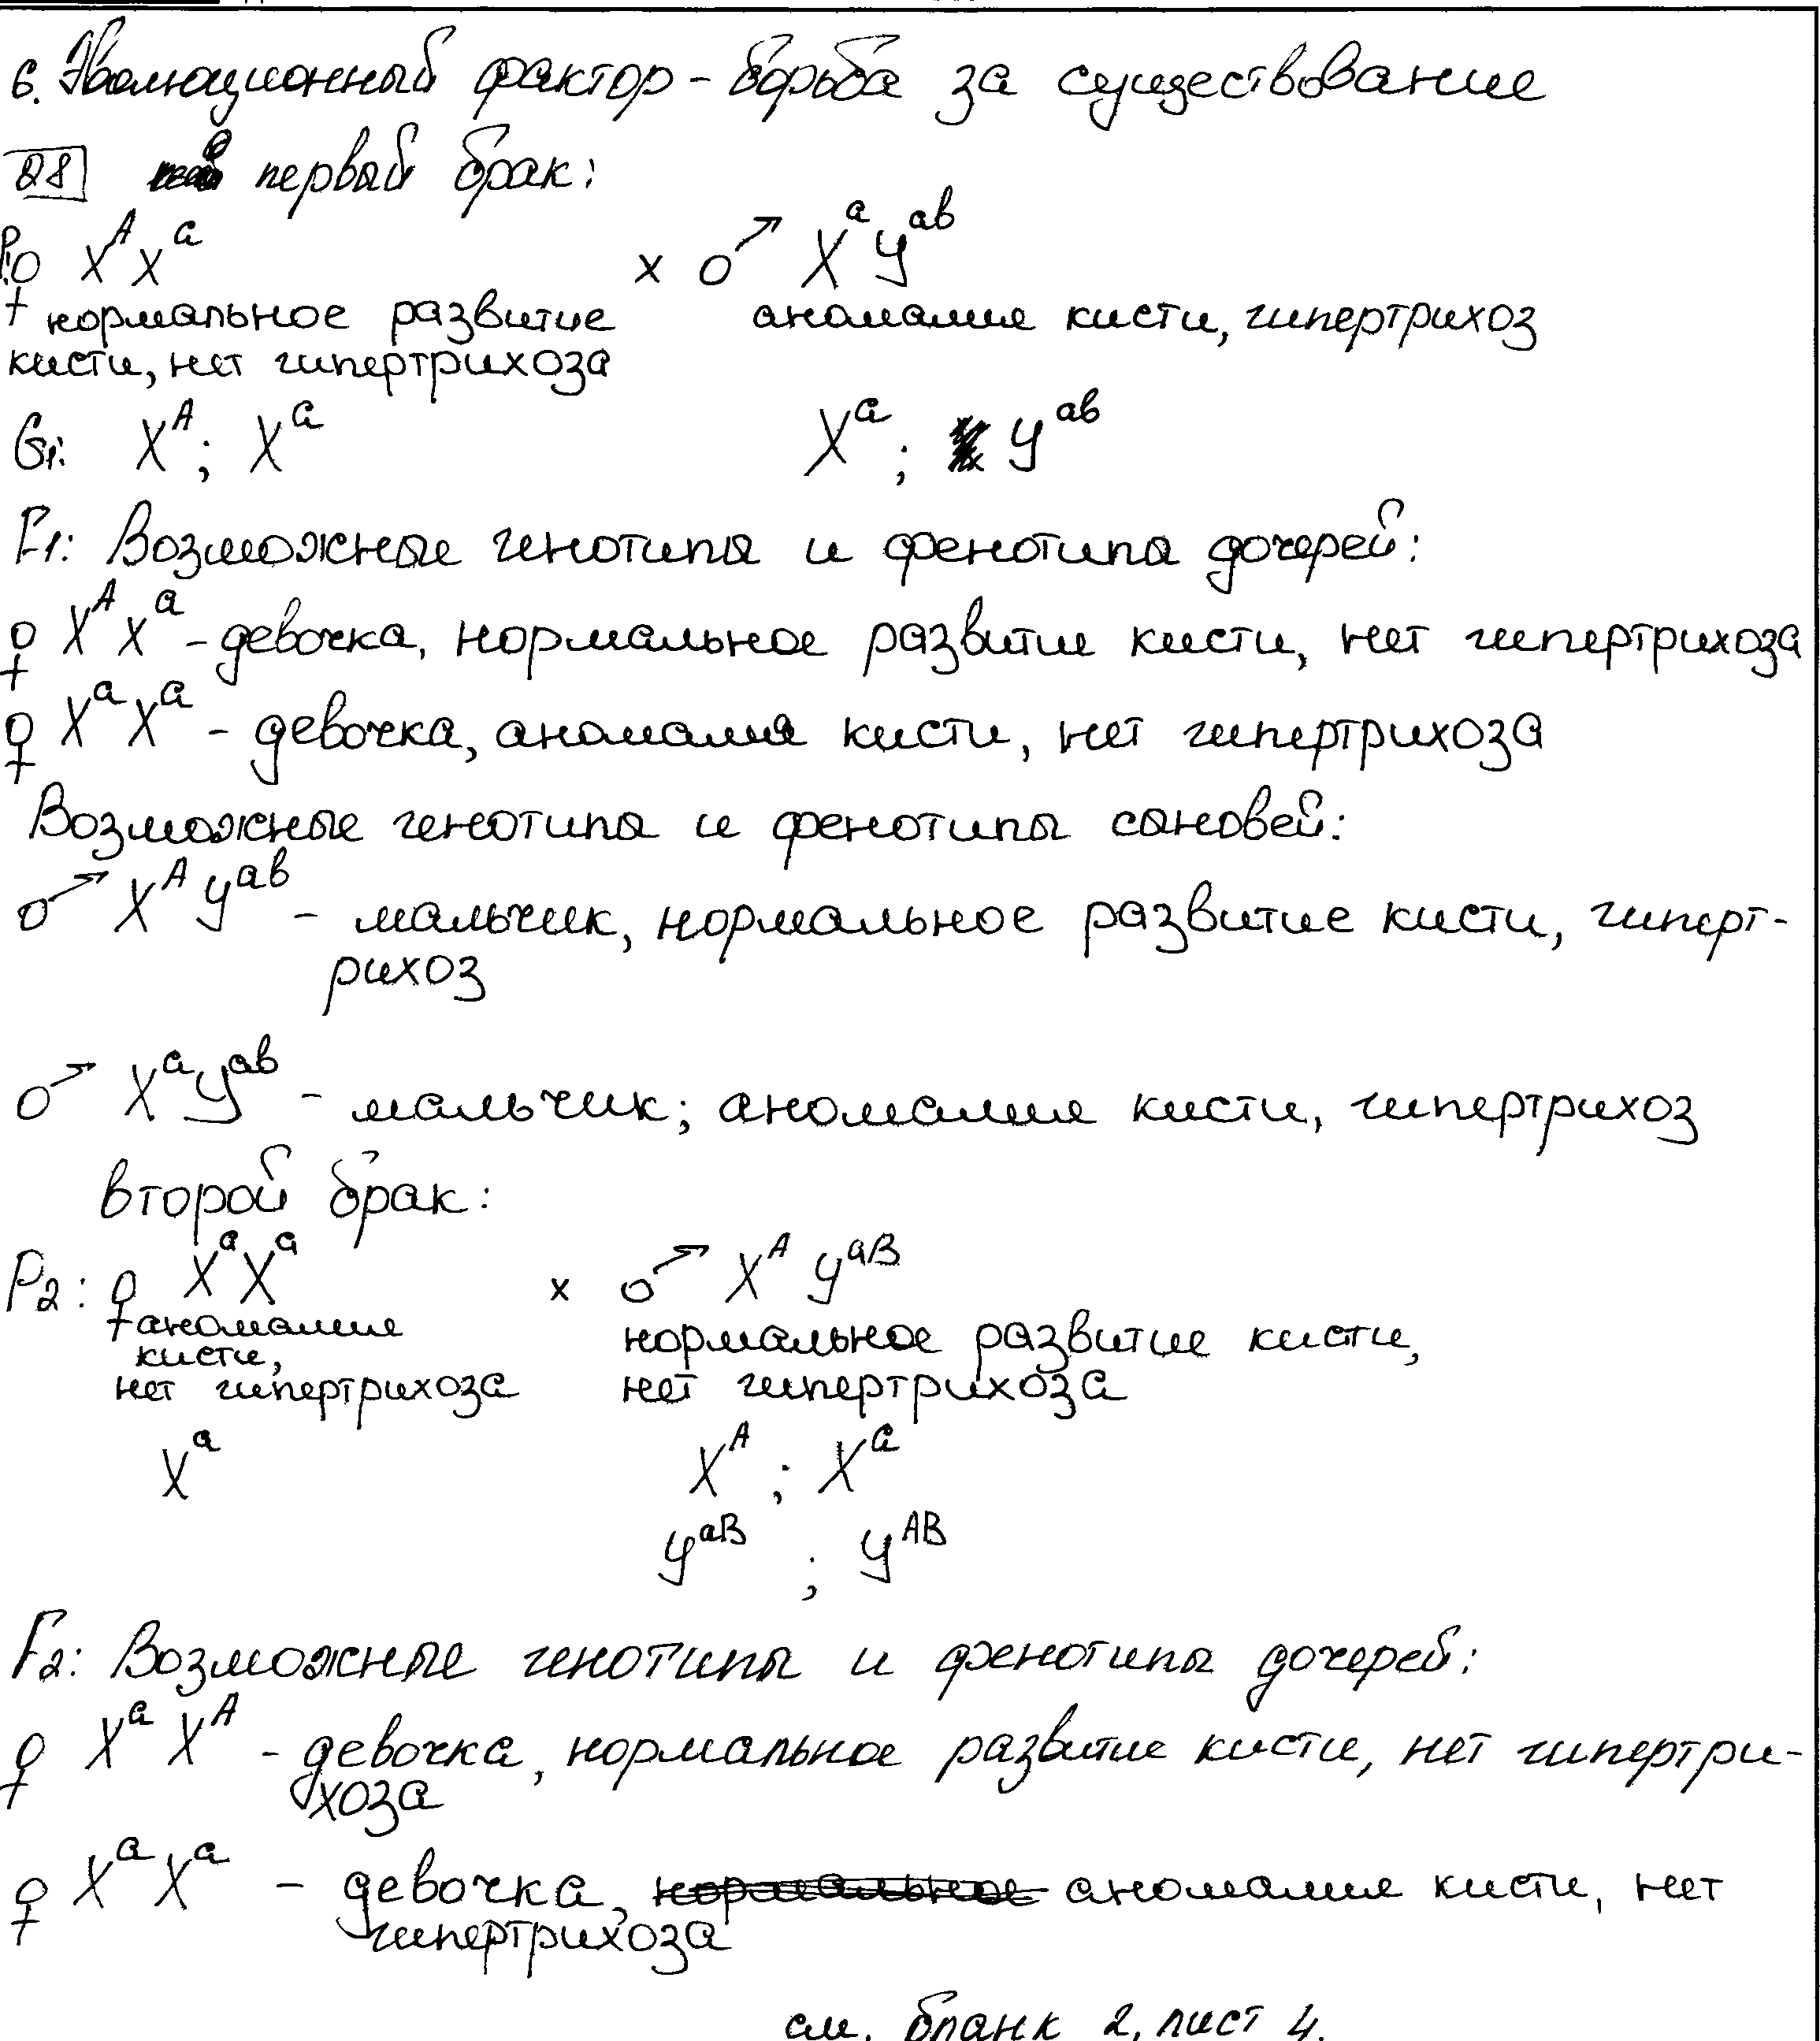 6. Эволюционный фактор - борьба за существование
28 первый брак:
P: ♀ X^A X^a × ♂ X^a Y^ab
нормальное развитие аномалия кисти, гипертрихоз
кисти, нет гипертрихоза
G1: X^A; X^a X^a; Y^ab
F1: Возможные генотипы и фенотипы дочерей:
♀ X^A X^a - девочка, нормальное развитие кисти, нет гипертрихоза
♀ X^a X^a - девочка, аномалия кисти, нет гипертрихоза
Возможные генотипы и фенотипы сыновей:
♂ X^A Y^ab - мальчик, нормальное развитие кисти, гиперт-
рихоз
♂ X^a Y^ab - мальчик; аномалия кисти, гипертрихоз
второй брак:
P2: ♀ X^a X^a × ♂ X^A Y^aB
аномалия нормальное развитие кисти,
кисти,
нет гипертрихоза нет гипертрихоза
X^a X^A; X^a
Y^aB; Y^AB
F2: Возможные генотипы и фенотипы дочерей:
♀ X^a X^A - девочка, нормальное развитие кисти, нет гипертри-
хоза
♀ X^a X^a - девочка, нормальное аномалия кисти, нет
гипертрихоза
см. бланк 2, лист 4.